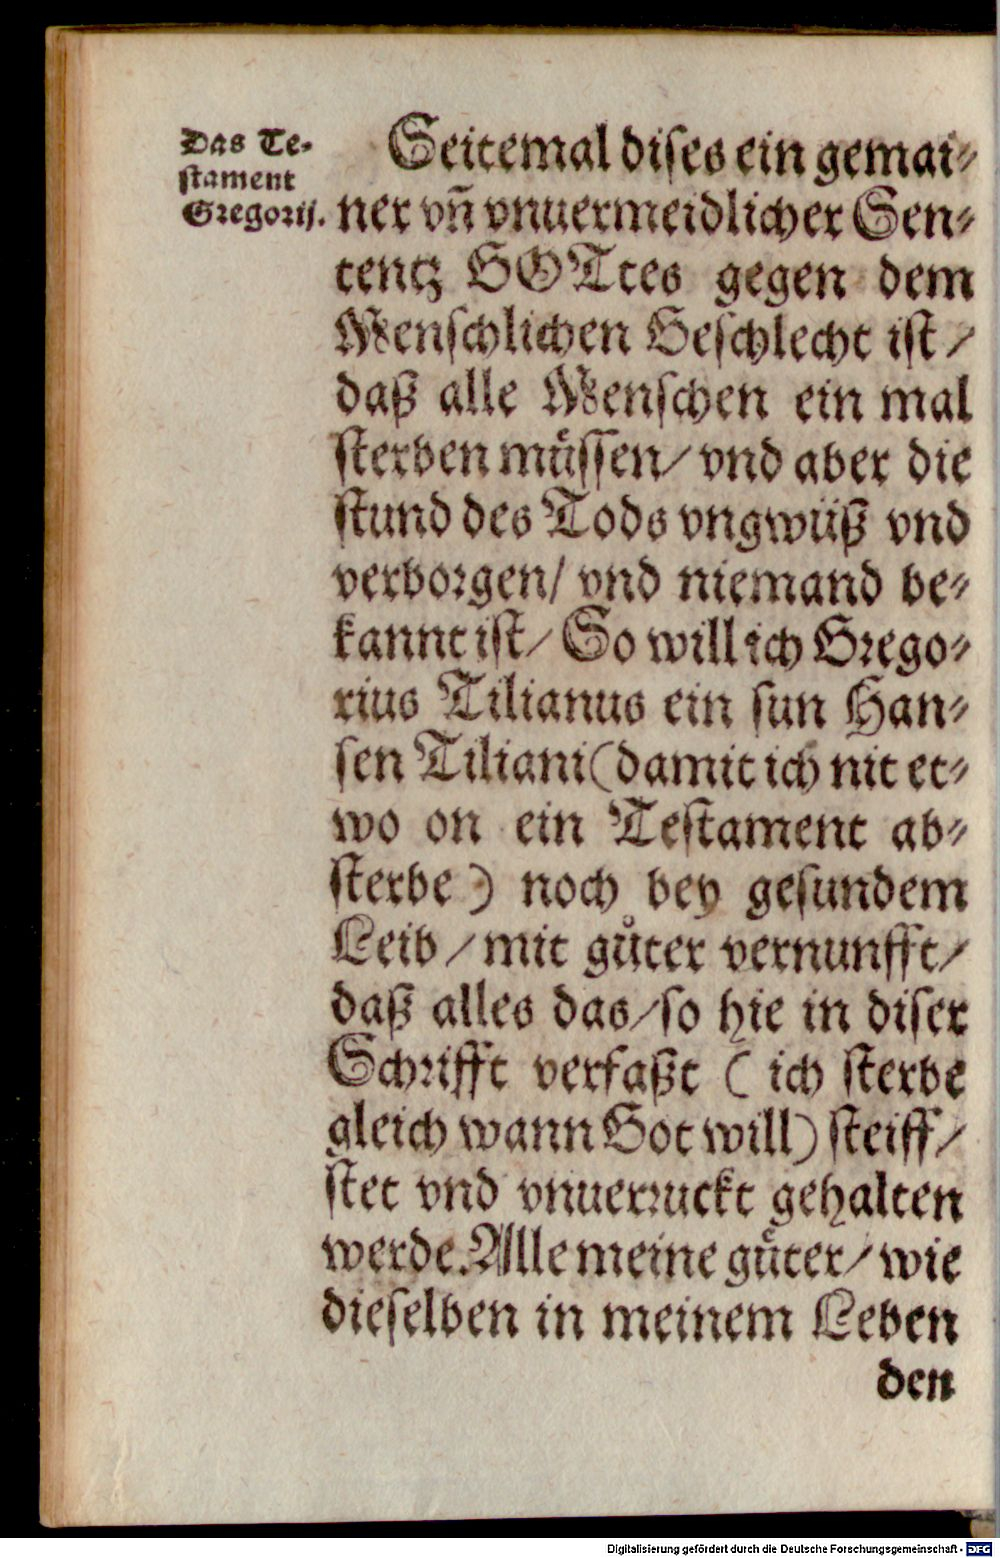 Das Te-
stament
Gregorij.
Seitemal dises ein gemai-
ner vñ vnuermeidlicher Sen-
tentz GOTtes gegen dem
Menschlichen Geschlecht ist /
daß alle Menschen ein mal
sterben muͤssen / vnd aber die
stund des Tods vngwüß vnd
verborgen / vnd niemand be-
kannt ist / So will ich Grego-
rius Tilianus ein sun Han-
sen Tiliani (damit ich nit et-
wo on ein Testament ab-
sterbe) noch bey gesundem
Leib / mit guͦter vernunfft /
daß alles das / so hie in diser
Schrifft verfaßt ( ich sterbe
gleich wann Got will) steiff /
stet vnd vnuerruckt gehalten
werde. Alle meine guͤter / wie
dieselben in meinem Leben
den
Digitalisierung gefördert durch die Deutsche Forschungsgemeinschaft - DFG